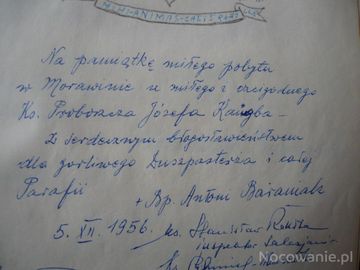 Na pamiątkę miłego pobytu
w Morawinie u miłego i czcigodnego
Ks. Proboszcza Józefa
z serdecznym błogosławieństwem
dla gorliwego Duszpasterza i całej
Parafii
+ Bp. Antoni Baraniak
5. XII. 1956. ks. Stanisław Rokita
inspektor
ks.
Nocowanie.pl